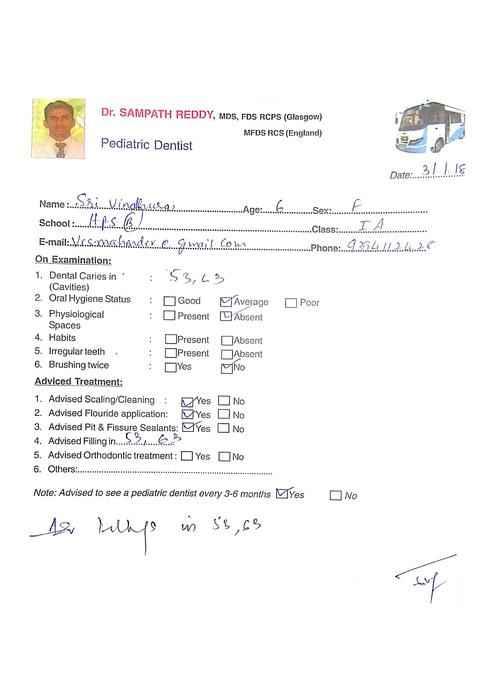 Dr. SAMPATH REDDY, MDS, FDS RCPS (Glasgow)
MFDS RCS (England)
Pediatric Dentist
Date: 3/1/18
Name: Sri Vindhura Age: 6 Sex: F
School: HPS (B) Class: I A
E-mail: Vcs.mahander@gmail.com Phone:
On Examination:
1. Dental Caries in : 53, 63
(Cavities)
2. Oral Hygiene Status : Good Average Poor
3. Physiological : Present Absent
Spaces
4. Habits : Present Absent
5. Irregular teeth : Present Absent
6. Brushing twice : Yes No
Adviced Treatment:
1. Advised Scaling/Cleaning : Yes No
2. Advised Flouride application: Yes No
3. Advised Pit & Fissure Sealants: Yes No
4. Advised Filling in 53, 63
5. Advised Orthodontic treatment: Yes No
6. Others:
Note: Advised to see a pediatric dentist every 3-6 months Yes No
in 53, 63